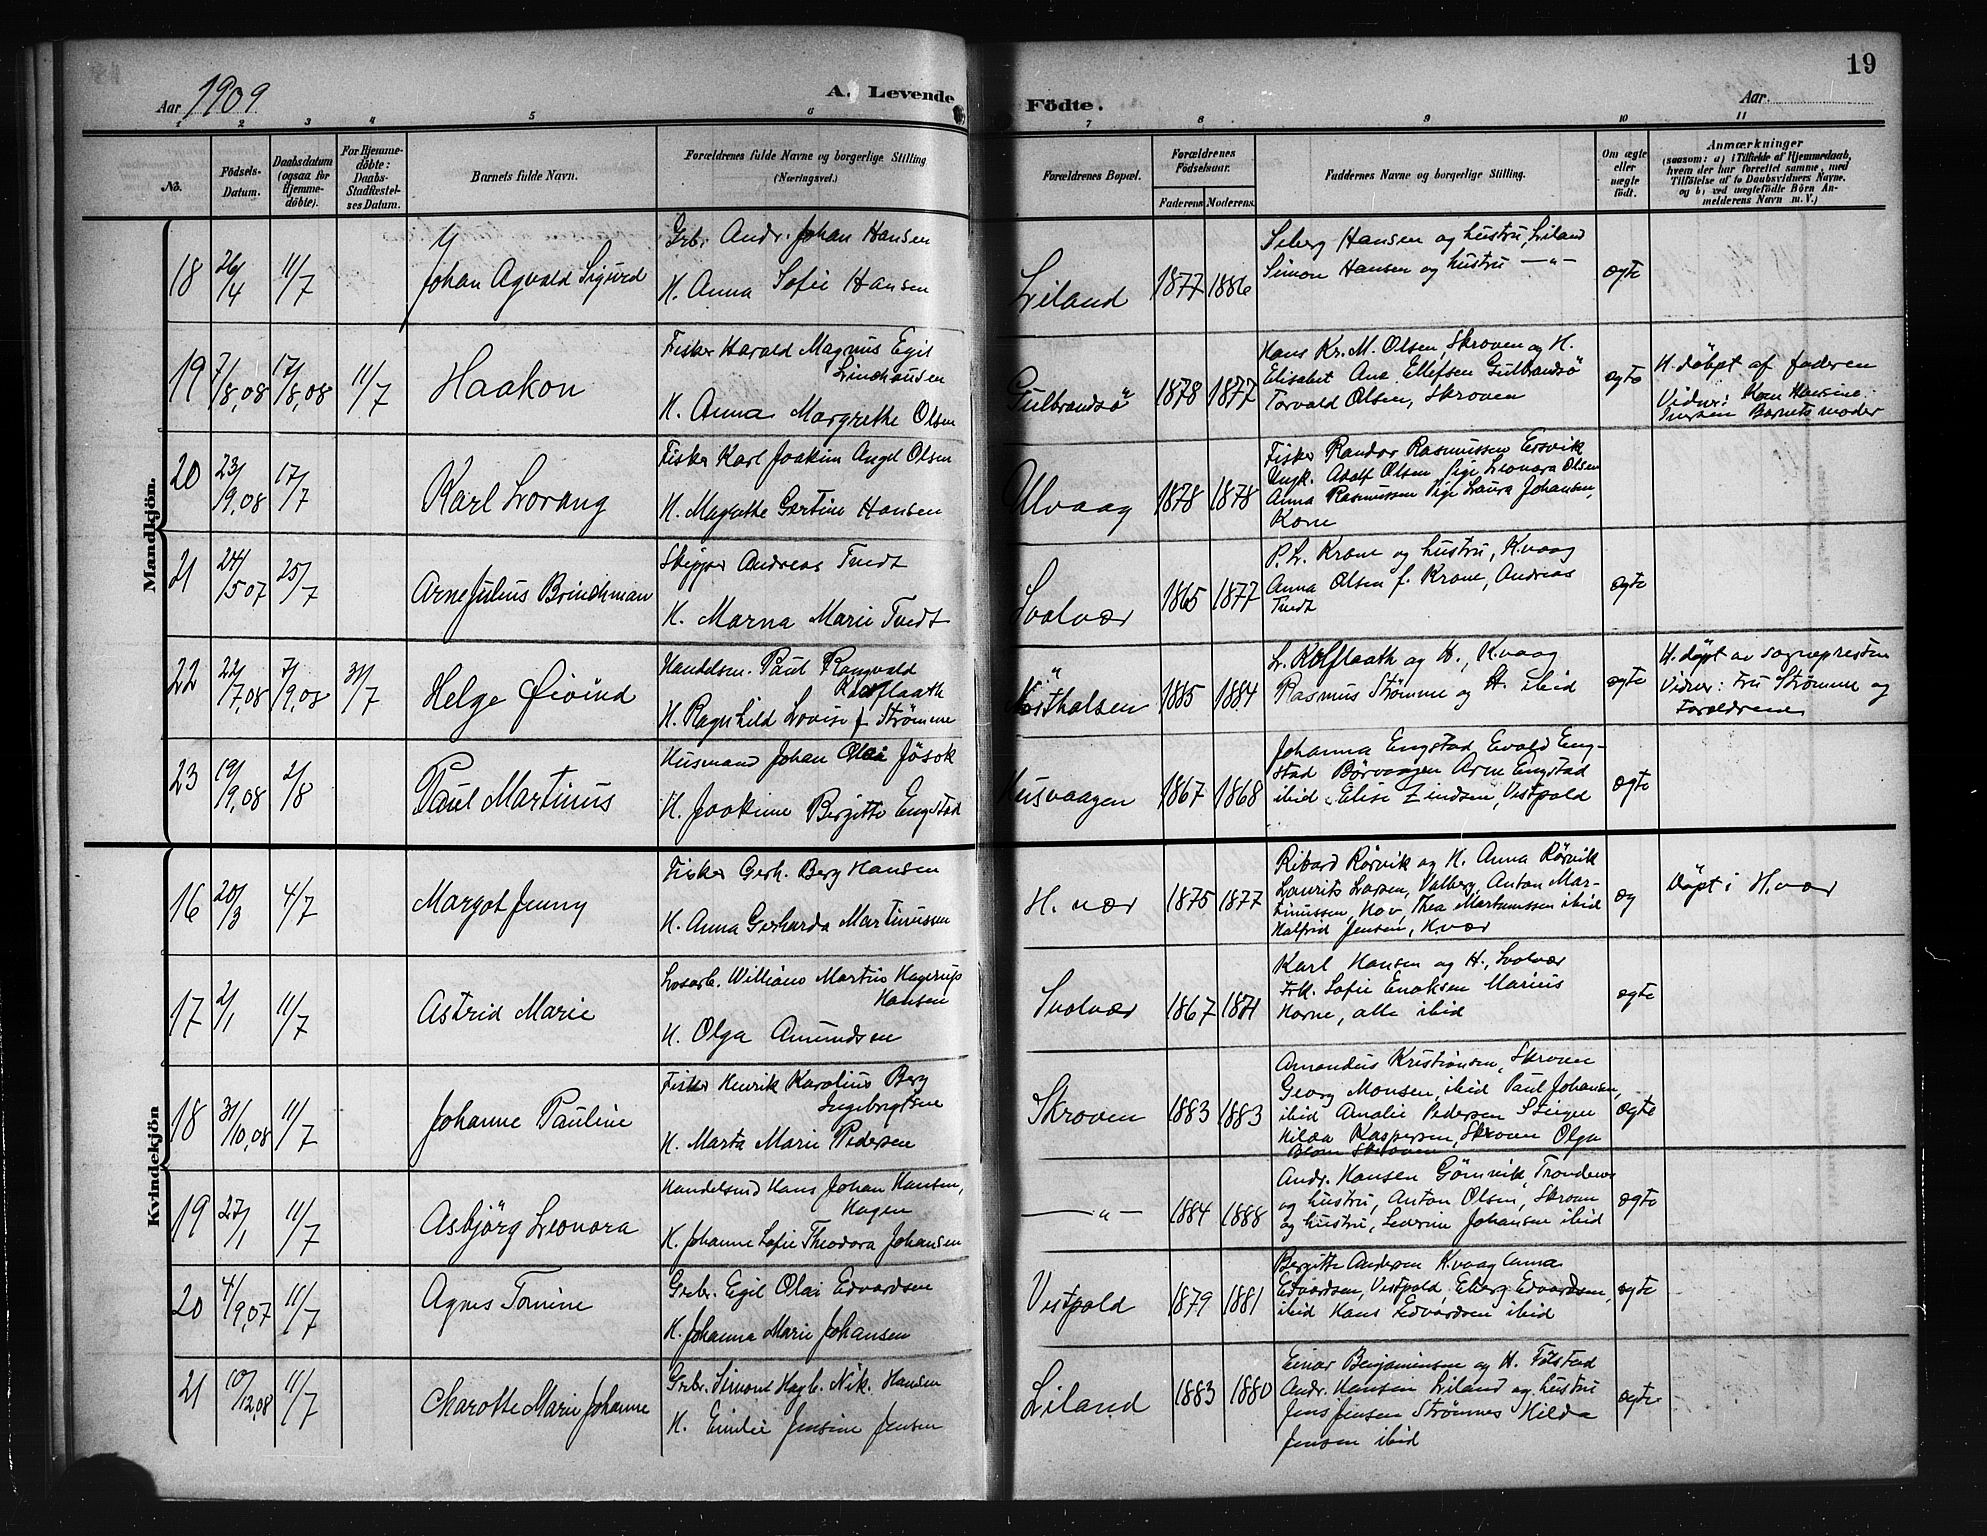 19
Aar 1909 A. Levende Födte. Aar
1 2 3 4 5 6 7 8 9 10 11
No. Födsels-Datum. Daabsdatum (ogsaa for Hjemme-döbte). For Hjemme-döbte: Daabs-Stadfæstel-ses Datum. Barnets fulde Navn. Forældrenes fulde Navne og borgerlige Stilling (Næringsvei.) Forældrenes Bopæl. Forældrenes Födselsaar. Faderens. Moderens. Faddernes Navne og borgerlige Stilling. Om ægte eller uægte födt. Anmærkninger (saasom: a) i Tilfælde af Hjemmedaab, hvem der har forrettet samme, med Tilföielse af to Daabsvidners Navne, og b) ved uægtefödte Börn An-melderens Navn m. V.)
Mandkjön.
18 26/4 11/7 Johan Agvald Sigurd
Grb. Andr. Johan Hansen
H. Anna Sofie Hansen
Liland 1877 1886
Seberg Hansen og hustru, Liland
Simon Hansen og hustru —"—
ægte
19 7/8,08 17/8,08 11/7 Haakon
Fisker Harald Magnus Egil
Lindhausen
H. Anna Margrethe Olsen
Gulbrandsø 1878 1877
Hans Kr. M. Olsen, Skroven og H.
Elisabet Ana Ellefsen Gulbrandsö
Torvald Olsen, Skroven
ægte
H. döbpt af faderen
Vidner: Kon Hansine
Iversen Barnets moder
20 23/19,08 17/7 Karl Lorang
Fisker Karl Joakim Angel Olsen
H. Magrethe Gertine Hansen
Ulvaag 1878 1878
Fisker Randor Rasmussen Ersvik
Ungk. Adolf Olsen Pige Leonora Olsen
Anna Rasmussen Pige Laura Johansen,
Kone
21 24/507 25/7 Arne Julius Brinchman
Skipper Andreas Tvedt
H. Marna Marie Tvedt
Svolvær 1865 1877
P. L. Krane og hustru, K.vaag
Anna Olsen f. Krane, Andreas
Tvedt
ægte
22 22/7,08 7/9,08 31/7 Helge Øivind
Handelsm. Paul Rangvald
Rolflaath
H. Ragnhild Lovise f. Strömme
Østholsen 1885 1884
L. Rolflaath og H., K.vaag
Rasmus Strömme og H. ibid
ægte
H. döpt av sognepresten
Vidner: Fru Strömme og
Forældrene
23 19/19,08 2/8 Paul Martinus
Husmand Johan Olai Jösok
H. Joakime Birgitte Engstad
Husvaagen 1867 1868
Johanna Engstad, Evald Eng-
stad Börvaagen Arne Engstad
ibid, Elise Zindsen, Vestpold
ægte
Kvindekjön
16 20/3 4/7 Margot Jenny
Fisker Gerh. Berg Hansen
H. Anna Gerharda Martinussen
H. vær 1875 1877
Rikard Rörvik og H. Anna Rörvik
Laurits Larsen, Valberg, Anton Mar-
tinussen, Hov, Thea Martinussen ibid
Halfrid Jensen, H.vær
æg
Döpt i H.vær
17 2/1 11/7 Astrid Marie
Losarb. William Martin Hagerup
Hansen
H. Olga Amundsen
Svolvær 1867 1871
Karl Hansen og H., Svolvær
Frk. Sofie Enoksen Marius
Horne, alle ibid
ægte
18 31/10,08 11/7 Johanne Pauline
Fisker Henrik Karolius Berg
Ingebrigtsen
H. Marta Marie Pedersen
Skroven 1883 1883
Amandus Kristiansen, Skroven
Georg Monsen, ibid Paul Johansen,
ibid Amalie Pedersen Steigen
Hilda Kaspersen, Skroven Olga
Blom Skroven
ægte
19 27/1 11/7 Asbjörg Leonora
Handelsmd Hans Johan Hansen,
Hagen
H. Johanne Sofie Theodora Johansen
—"— 1884 1888
Andr. Hansen Gömvik, Trondenes
og hustru, Anton Olsen, Skroven
og hustru, Severine Johansen ibid
ægte
20 4/9,07 11/7 Agnes Tomine
Grbr. Egil Olai Edvardsen
H. Johanna Marie Johansen
Vestpold 1879 1881
Bergitte Andersen K.vaag Anna
Edvardsen, Vestpold, Elberg Edvardsen,
ibid Hans Edvardsen ibid
ægte
21 10/12,08 11/7 Charotte Marie Johanne
Grbr. Simon Hagb. Nik. Hansen
H. Emilie Jensine Jensen
Liland 1883 1880
Einar Benjaminsen og H. Tölstad
Andr. Hansen Liland og hustru
Jens Jensen Strömnes Hilda
Jensen ibid
ægte